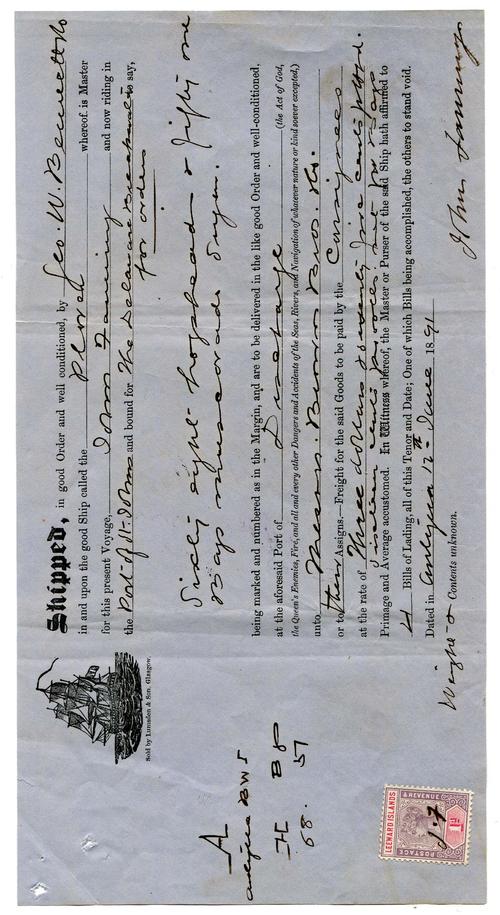 Shipped, in good Order and well conditioned, by Geo. W. Bennett & Co
in and upon the good Ship called the Plover whereof is Master
for this present Voyage, John Fanning and now riding in
the Port of St. Johns and bound for The Delaware Breakwater to say,
for orders
Sixty eight hogsheads & fifty one
Bags muscovado Sugar.
being marked and numbered as in the Margin, and are to be delivered in the like good Order and well-conditioned.
at the aforesaid Port of Discharge (the Act of God,
the Queen's Enemies, Fire, and all and every other Dangers and Accidents of the Seas, Rivers, and Navigation of whatever nature or kind soever excepted,)
unto Messrs. Brown Bros. & Co.
or to their Assigns.—Freight for the said Goods to be paid by the Consignees
at the rate of Three dollars & seventy five cents pr hhd.
cents pr for Bags
Primage and Average accustomed. In Witness whereof, the Master or Purser of the said Ship hath affirmed to
4 Bills of Lading, all of this Tenor and Date; One of which Bills being accomplished, the others to stand void.
Dated in Antigua 12th June 1891
Weight & Contents unknown.
John Fanning
Sold by Lumsden & Son. Glasgow.
A
Antigua BWI
H Bg
68. 51
LEEWARD ISLANDS
1D
J.F
POSTAGE & REVENUE